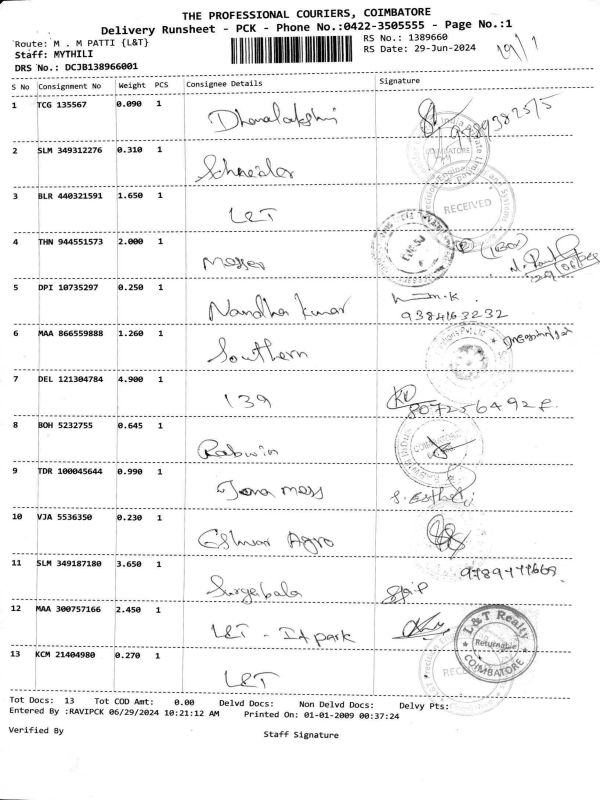 THE PROFESSIONAL COURIERS, COIMBATORE
Delivery Runsheet - PCK - Phone No.:0422-3505555 - Page No.:1
Route: M . M PATTI {L&T}
RS No.: 1389660
Staff: MYTHILI
RS Date: 29-Jun-2024
DRS No.: DCJB138966001
S No Consignment No Weight PCS Consignee Details Signature
1 TCG 135567 0.090 1 Dhanalakshmi
2 SLM 349312276 0.310 1 Schneider
COIMBATORE
3 BLR 440321591 1.650 1 L&T
RECEIVED
4 THN 944551573 2.000 1 Messer
5 DPI 10735297 0.250 1 Nandha kumar
9384163232
6 MAA 866559888 1.260 1 Southern
7 DEL 121304784 4.900 1 139
807256492
8 BOH 5232755 0.645 1 Rabwin
9 TDR 100045644 0.990 1 Jona mess
10 VJA 5536350 0.230 1 Eshwar Agro
11 SLM 349187180 3.650 1
12 MAA 300757166 2.450 1 L&T - IA park
L&T Realty
Returnable
COIMBATORE
13 KCM 21404980 0.270 1 L&T
Tot Docs: 13 Tot COD Amt: 0.00 Delvd Docs: Non Delvd Docs: Delvy Pts:
Entered By :RAVIPCK 06/29/2024 10:21:12 AM Printed On: 01-01-2009 00:37:24
Verified By
Staff Signature